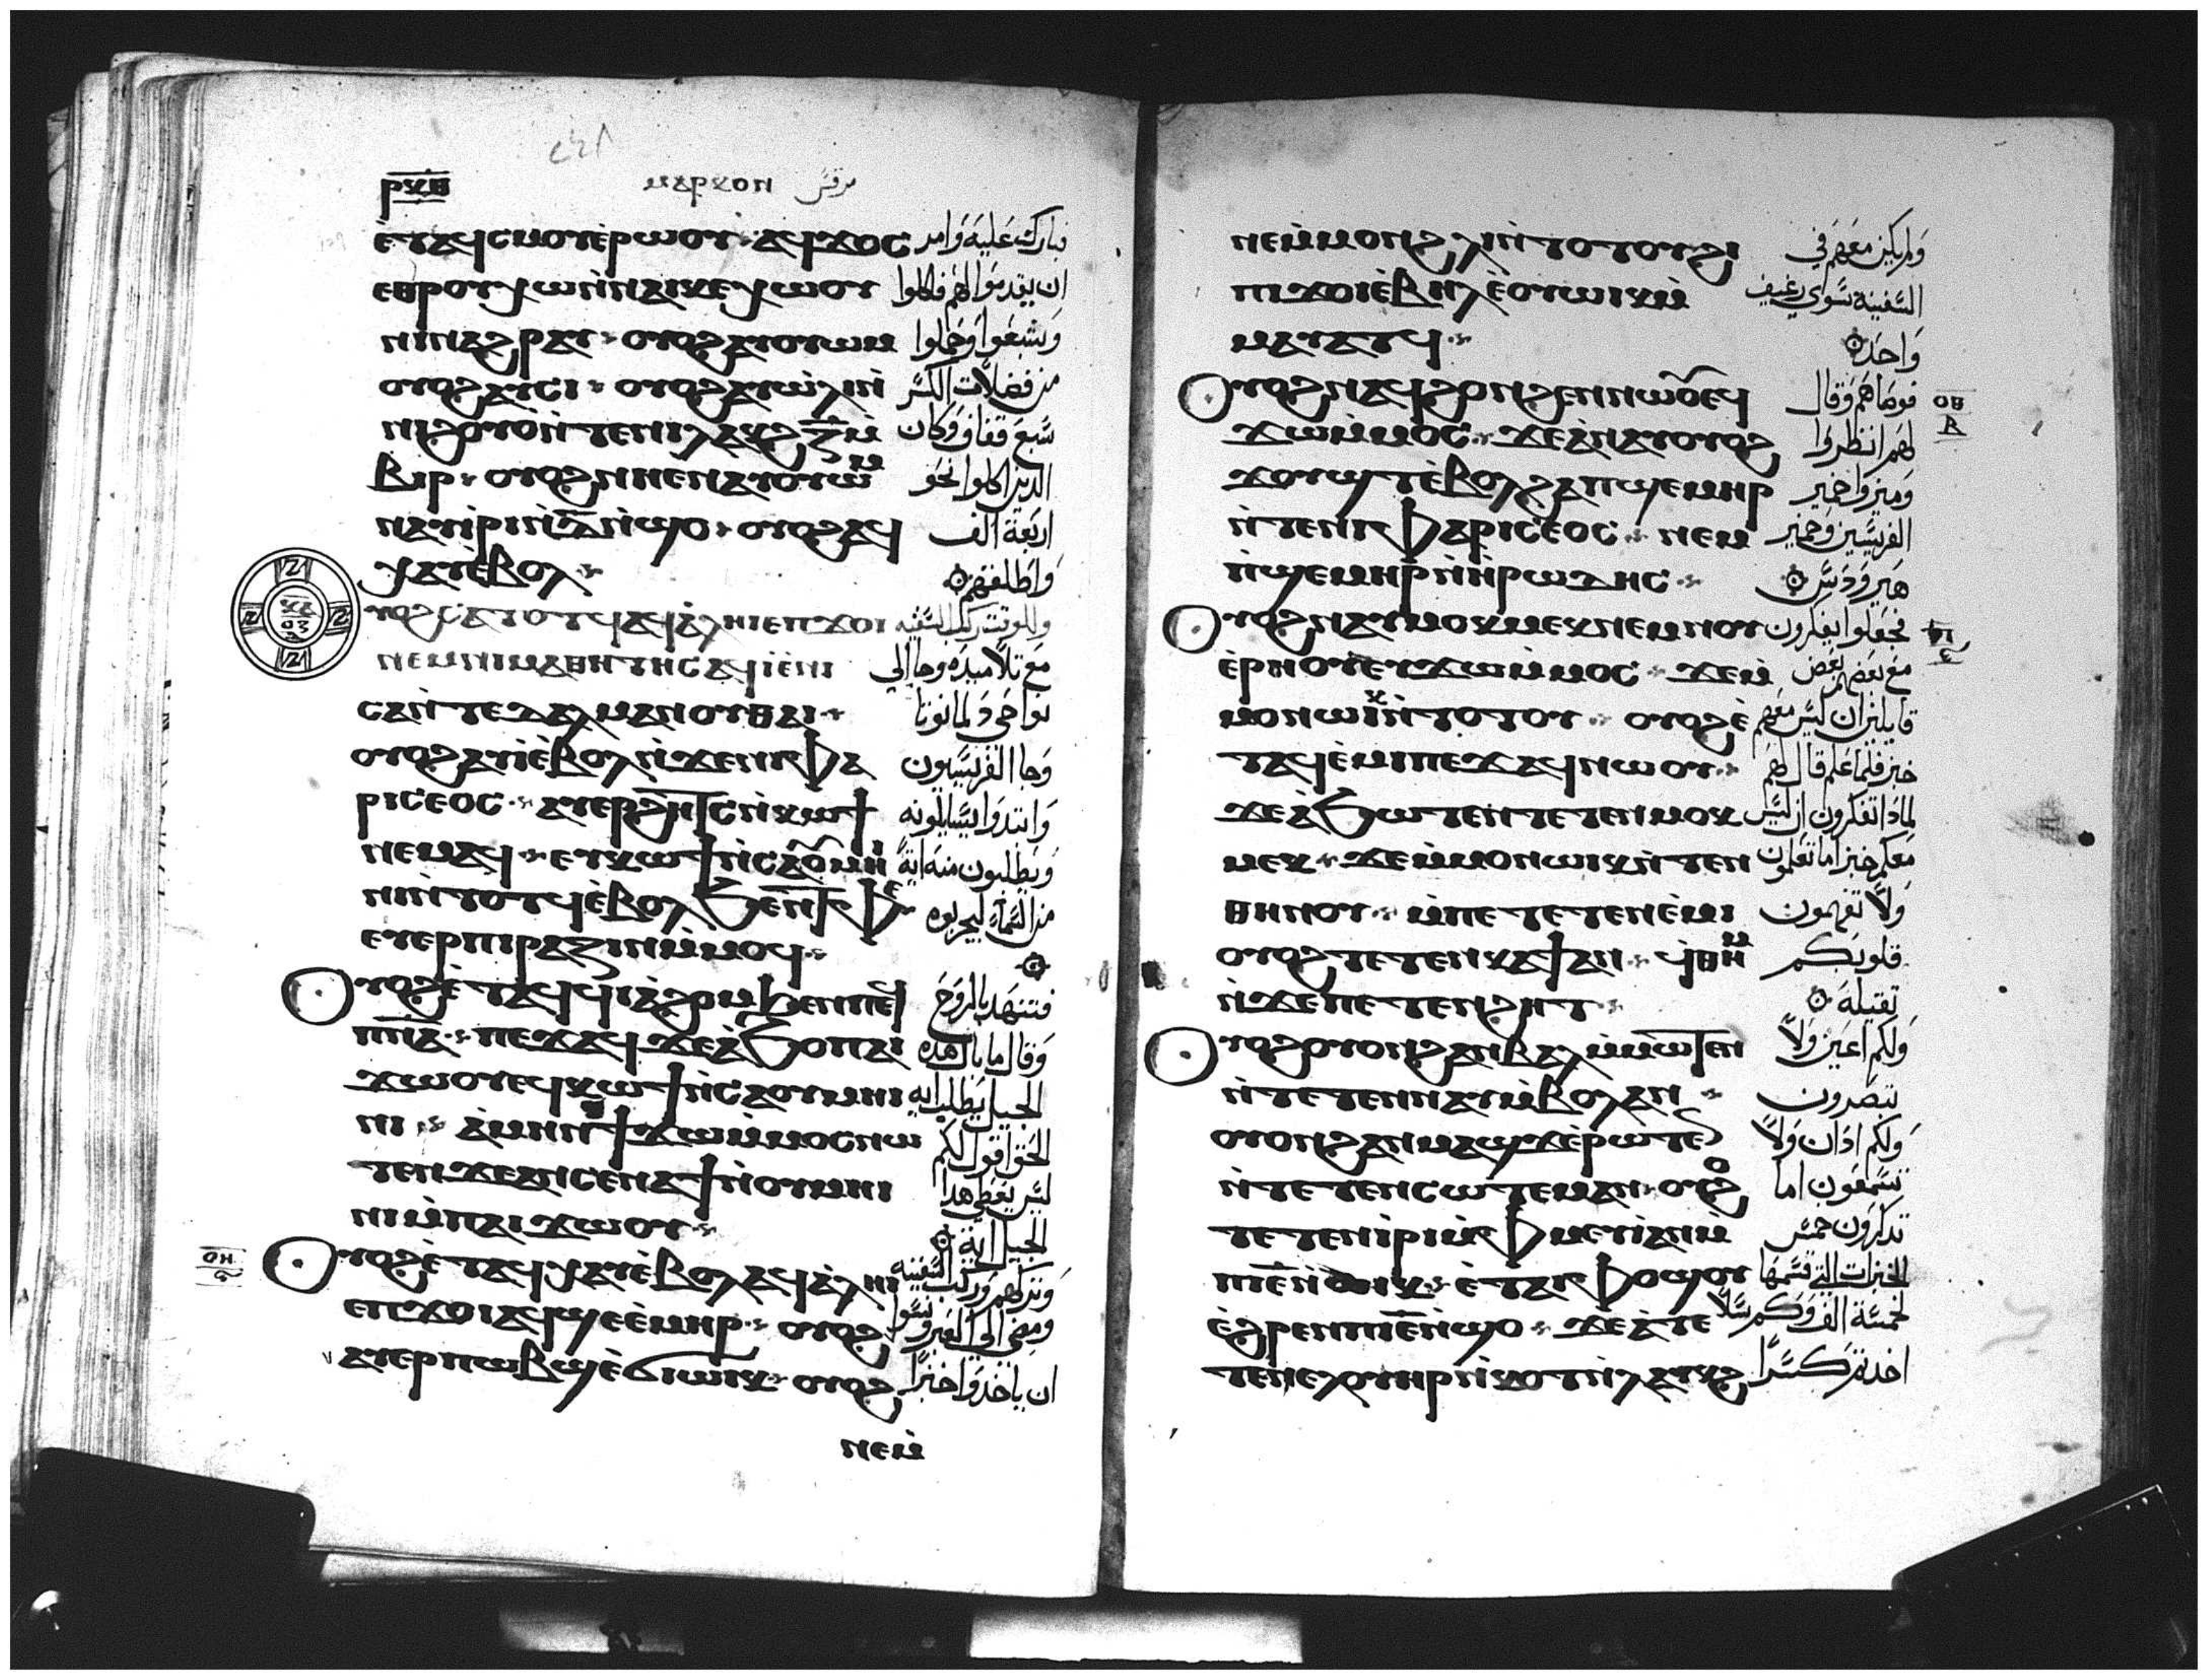 ⲣⲝⲑ ⲙⲁⲣⲕⲟⲛ مرقس
ⲉ̀ⲧⲁϥⲥⲙⲟⲩⲉ̀ⲣⲱⲟⲩ ⲁϥϫⲟⲥ فبارك عليه وامر
ⲉⲑⲣⲟⲩⲭⲱⲛ̀ⲛⲁⲓⲕⲉⲭⲱⲟⲩ ان يقدموا لهم فاكلوا
ⲛⲓⲛⲁϩⲣⲁⲩ ⲟⲩⲟϩⲁⲩⲟⲩⲱⲙ وشبعوا وحملوا
ⲟⲩⲟϩⲁⲩⲥⲓ ⲟⲩⲟϩⲁⲩⲱ̀ⲗⲓⲛ̀ من فضلات الكسر
ⲛⲓϩⲟⲩⲟⲛ̀ⲧⲉⲛⲓⲗⲁⲕϩ ⲍ̅ⲙ̀ سبع قفاف وكان
ⲃⲓⲣ ⲟⲩⲟϩⲛⲏⲉⲛⲁⲩⲟⲩⲱⲙ الذين اكلوا نحو
ⲛⲁⲩⲏ̀ⲣⲓⲛ̀ⲇ̅ⲛ̀ϣⲟ ⲟⲩⲟϩⲁϥ اربعة الف
ⲭⲁⲩⲉ̀ⲃⲟⲗ واطلقهم
ⲩⲟϩⲥⲁⲧⲟⲧϥⲁϥⲁ̀ⲗⲏⲓⲉⲡϫⲟⲓ وللوقت ركب السفينه
ⲛⲉⲙⲛⲓⲙⲁⲑⲏⲧⲏⲥⲁϥⲓ̀ⲉ̀ⲛⲓ مع تلاميذه وجا الي
ⲥⲁⲛ̀ⲧⲉⲇⲁⲗⲙⲁⲛⲟⲩⲑⲁⲓ نواحي دلمانوتا
ⲟⲩⲟϩⲁⲩⲓ̀ⲉ̀ⲃⲟⲗⲛ̀ϫⲉⲛⲓⲫⲁ وجا الفريسيون
ⲣⲓⲥⲉⲟⲥ ⲁⲩⲉⲣϩⲏⲧⲥⲛ̀ⲕⲱϯ وابتدوا يسايلونه
ⲛⲉⲙⲁϥ ⲉⲩⲕⲱϯⲛ̀ⲥⲁⲟⲩⲙⲏ ويطلبون منه اية
ⲛⲓⲛ̀ⲧⲟⲧϥⲉ̀ⲃⲟⲗϧⲉⲛⲧⲫⲉ من السماء ليجربوه
ⲉⲩⲉⲣⲡⲓⲣⲁⲍⲓⲛⲙ̀ⲙⲟϥ
ⲩⲟϩⲉ̀ⲧⲁϥϥⲓⲁ̀ϩⲟⲙϧⲉⲛⲡⲉϥ فتنهد بالروح
ⲡⲛ̅ⲁ̅ ⲡⲉϫⲁϥϫⲉⲁ̀ϧⲟⲡⲁⲓ وقال ما بال هذه
ϫⲱⲟⲩⲉϥⲕⲱϯⲛ̀ⲥⲁⲟⲩⲙⲏⲓ الجيل يطلب ايه
ⲛⲓ ⲁ̀ⲙⲏⲛϯϫⲱⲙ̀ⲙⲟⲥⲛⲱ الحق اقول لكم
ⲧⲉⲛϫⲉⲁⲛⲥⲉⲛⲁϯⲛ̀ⲟⲩⲙⲏⲓ ليس يعطي هذا
ⲛⲓⲙ̀ⲡⲁⲓϫⲱⲟⲩ الجيل اية
ⲟⲏ ⲩⲟϩⲉ̀ⲧⲁϥⲭⲁⲩⲉ̀ⲃⲟⲗⲁϥⲁ̀ⲗⲏⲓ وتركهم وركب السفينه
ⲉⲡϫⲟⲓⲁϥϣⲉⲉ̀ⲙⲏⲣ ⲟⲩⲟϩ ومضي الي العبر ونسوا
ⲁⲩⲉⲣⲡⲱⲃϣⲉ̀ϭⲓⲱⲓⲕ ⲟⲩⲟϩ ان ياخذوا خبزا
ⲛⲉⲙ̀
ⲛⲉⲙ̀ⲙⲟⲛϩⲗⲓⲛ̀ⲧⲟⲧⲟⲩϩⲓ ولم يكن معهم في
ⲡⲓϫⲟⲓⲉ̀ⲃⲏⲗⲉ̀ⲟⲩⲱⲓⲕⲙ̀ السفينه سواي رغيف
ⲙⲁⲩⲁⲧϥ واحد
ⲩⲟϩⲛⲁϥϩⲟⲛϩⲉⲛⲛⲱⲟⲩⲉϥ فوصاهم وقال ⲟⲑ
ϫⲱⲙ̀ⲙⲟⲥ ϫⲉⲁ̀ⲛⲁⲩⲟⲩⲟϩ لهم انظروا
ϫⲟⲩϣⲧⲉ̀ⲃⲟⲗϩⲁⲡϣⲉⲙⲏⲣ وميزوا خمير
ⲛ̀ⲧⲉⲛⲓⲫⲁⲣⲓⲥⲉⲟⲥ ⲛⲉⲙ الفريسيين وخمير
ⲛ̀ϣⲉⲙⲏⲣⲛ̀ⲏ̀ⲣⲱⲇⲏⲥ هيرودس
ⲩⲟϩⲛⲁⲩⲙⲟⲕⲙⲉⲕⲛⲉⲙⲛⲟⲩ فجعلوا يفكرون
ⲉ̀ⲣⲏⲟⲩⲉⲩϫⲱⲙ̀ⲙⲟⲥ ϫⲉⲙ̀ مع بعضهم بعض
ⲙⲟⲛⲱⲓⲕⲛ̀ⲧⲟⲧⲟⲩ ⲟⲩⲟϩⲉ̀ قايلين ان ليس معهم
ⲧⲁϥⲉ̀ⲙⲓⲡⲉϫⲁϥⲛⲱⲟⲩ خبز فلما علم قال لهم
ϫⲉⲁ̀ϧⲱⲧⲉⲛⲧⲉⲧⲉⲛⲙⲟⲕ لماذا تفكرون ان ليس
ⲙⲉⲕ ϫⲉⲙ̀ⲙⲟⲛⲱⲓⲕⲛ̀ⲧⲉⲛ معكم خبز اما تعلمون
ⲑⲏⲛⲟⲩ ⲙ̀ⲡⲉⲧⲉⲧⲉⲛⲉ̀ⲙⲓ ولا تفهمون
ⲟⲩⲟϩⲧⲉⲧⲉⲛⲕⲁϯⲁⲛ ϥⲑⲏⲙ قلوبكم
ⲛ̀ϫⲉⲡⲉⲧⲉⲛϩⲏⲧ ثقيلة
ⲩⲟϩⲟⲩⲟⲛϩⲁⲛⲃⲁⲗⲙ̀ⲙⲱⲧⲉⲛ ولكم اعين ولا
ⲛ̀ⲧⲉⲧⲉⲛⲛⲁⲩⲙ̀ⲃⲟⲗⲁⲛ تبصرون
ⲟⲩⲟⲛϩⲁⲛⲙⲁϣϫⲉ̀ⲣⲱⲧⲉⲛ ولكم اذان ولا
ⲛ̀ⲧⲉⲧⲉⲛⲥⲱⲧⲉⲙⲁⲛ ⲟⲩⲟϩ تسمعون اما
ⲧⲉⲧⲉⲛⲓ̀ⲣⲓⲙ̀ⲫⲙⲉⲩⲓ̀ⲁⲛⲙ̀ تذكرون خمس
ⲡⲓⲉ̅ⲛ̀ⲱⲓⲕ ⲉ̀ⲧⲁⲓⲫⲟϣⲟⲩ الخبزات التي قسمتها
ⲉ̀ϩⲣⲉⲛⲡⲓⲉ̅ⲛ̀ϣⲟ ϫⲉⲁ̀ⲧⲉ لخمسة الف وكم سلا
ⲧⲉⲛⲉⲗⲟⲩⲏⲣⲛ̀ⲕⲟⲧⲛ̀ⲗⲁⲕϩ اخذتم كسرا